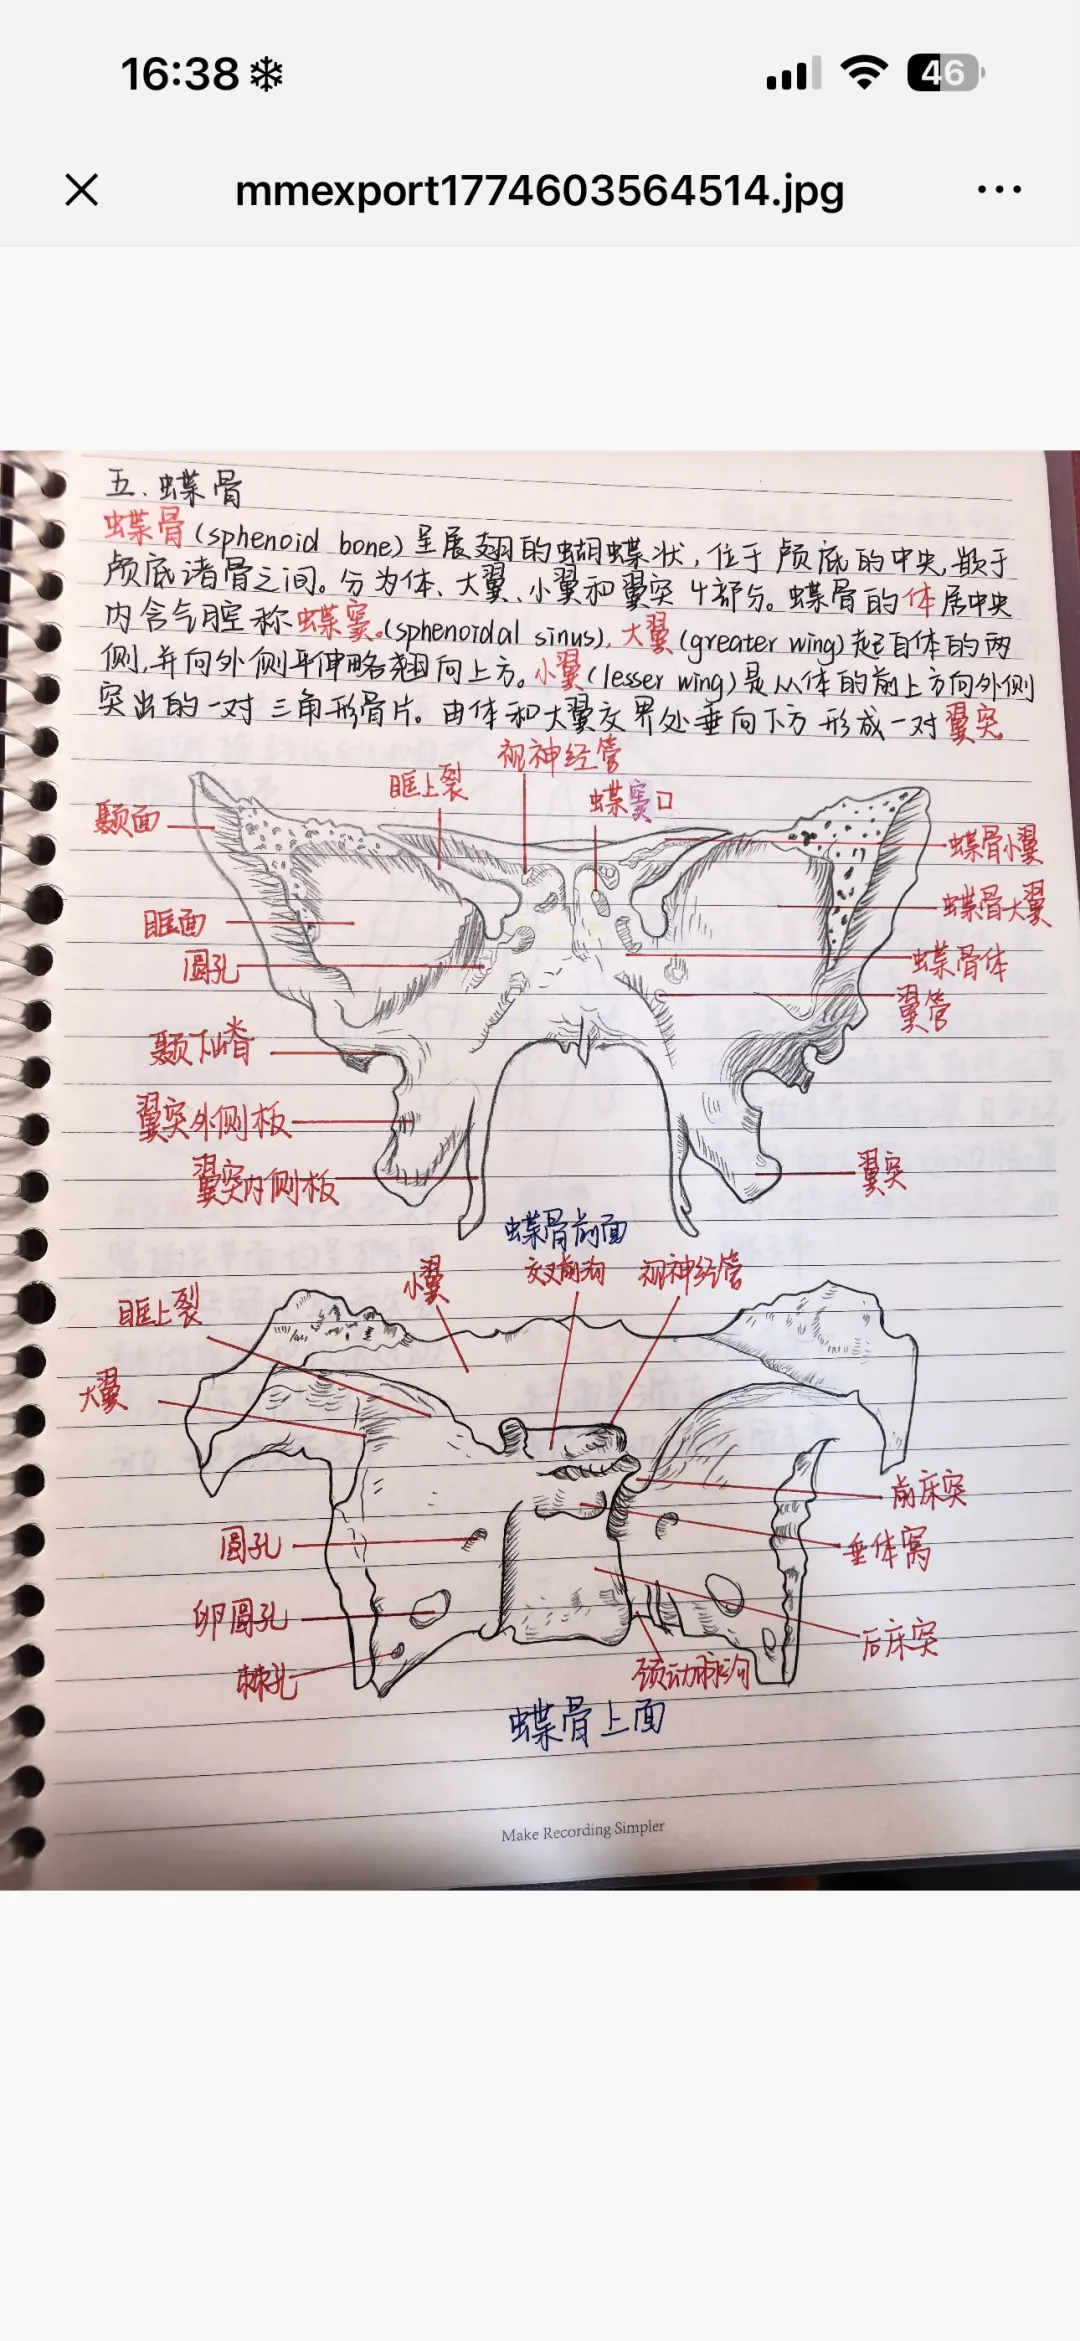 16:38
46
mmexport1774603564514.jpg
五.蝶骨
蝶骨(sphenoid bone)呈展翅的蝴蝶状,位于颅底的中央,嵌于
颅底诸骨之间。分为体、大翼、小翼和翼突4部分。蝶骨的体居中央
内含气腔称蝶窦。(sphenoidal sinus),大翼(greater wing)起自体的两
侧,并向外侧平伸略翘向上方。小翼(lesser wing)是从体的前上方向外侧
突出的一对三角形骨片。由体和大翼交界处垂向下方形成一对翼突
视神经管
眶上裂
蝶窦口
颞面
蝶骨小翼
眶面
蝶骨大翼
圆孔
蝶骨体
翼管
颞下嵴
翼突外侧板
翼突内侧板
翼突
蝶骨前面
小翼
交叉前沟
视神经管
眶上裂
大翼
前床突
圆孔
垂体窝
卵圆孔
后床突
棘孔
颈动脉沟
蝶骨上面
Make Recording Simpler